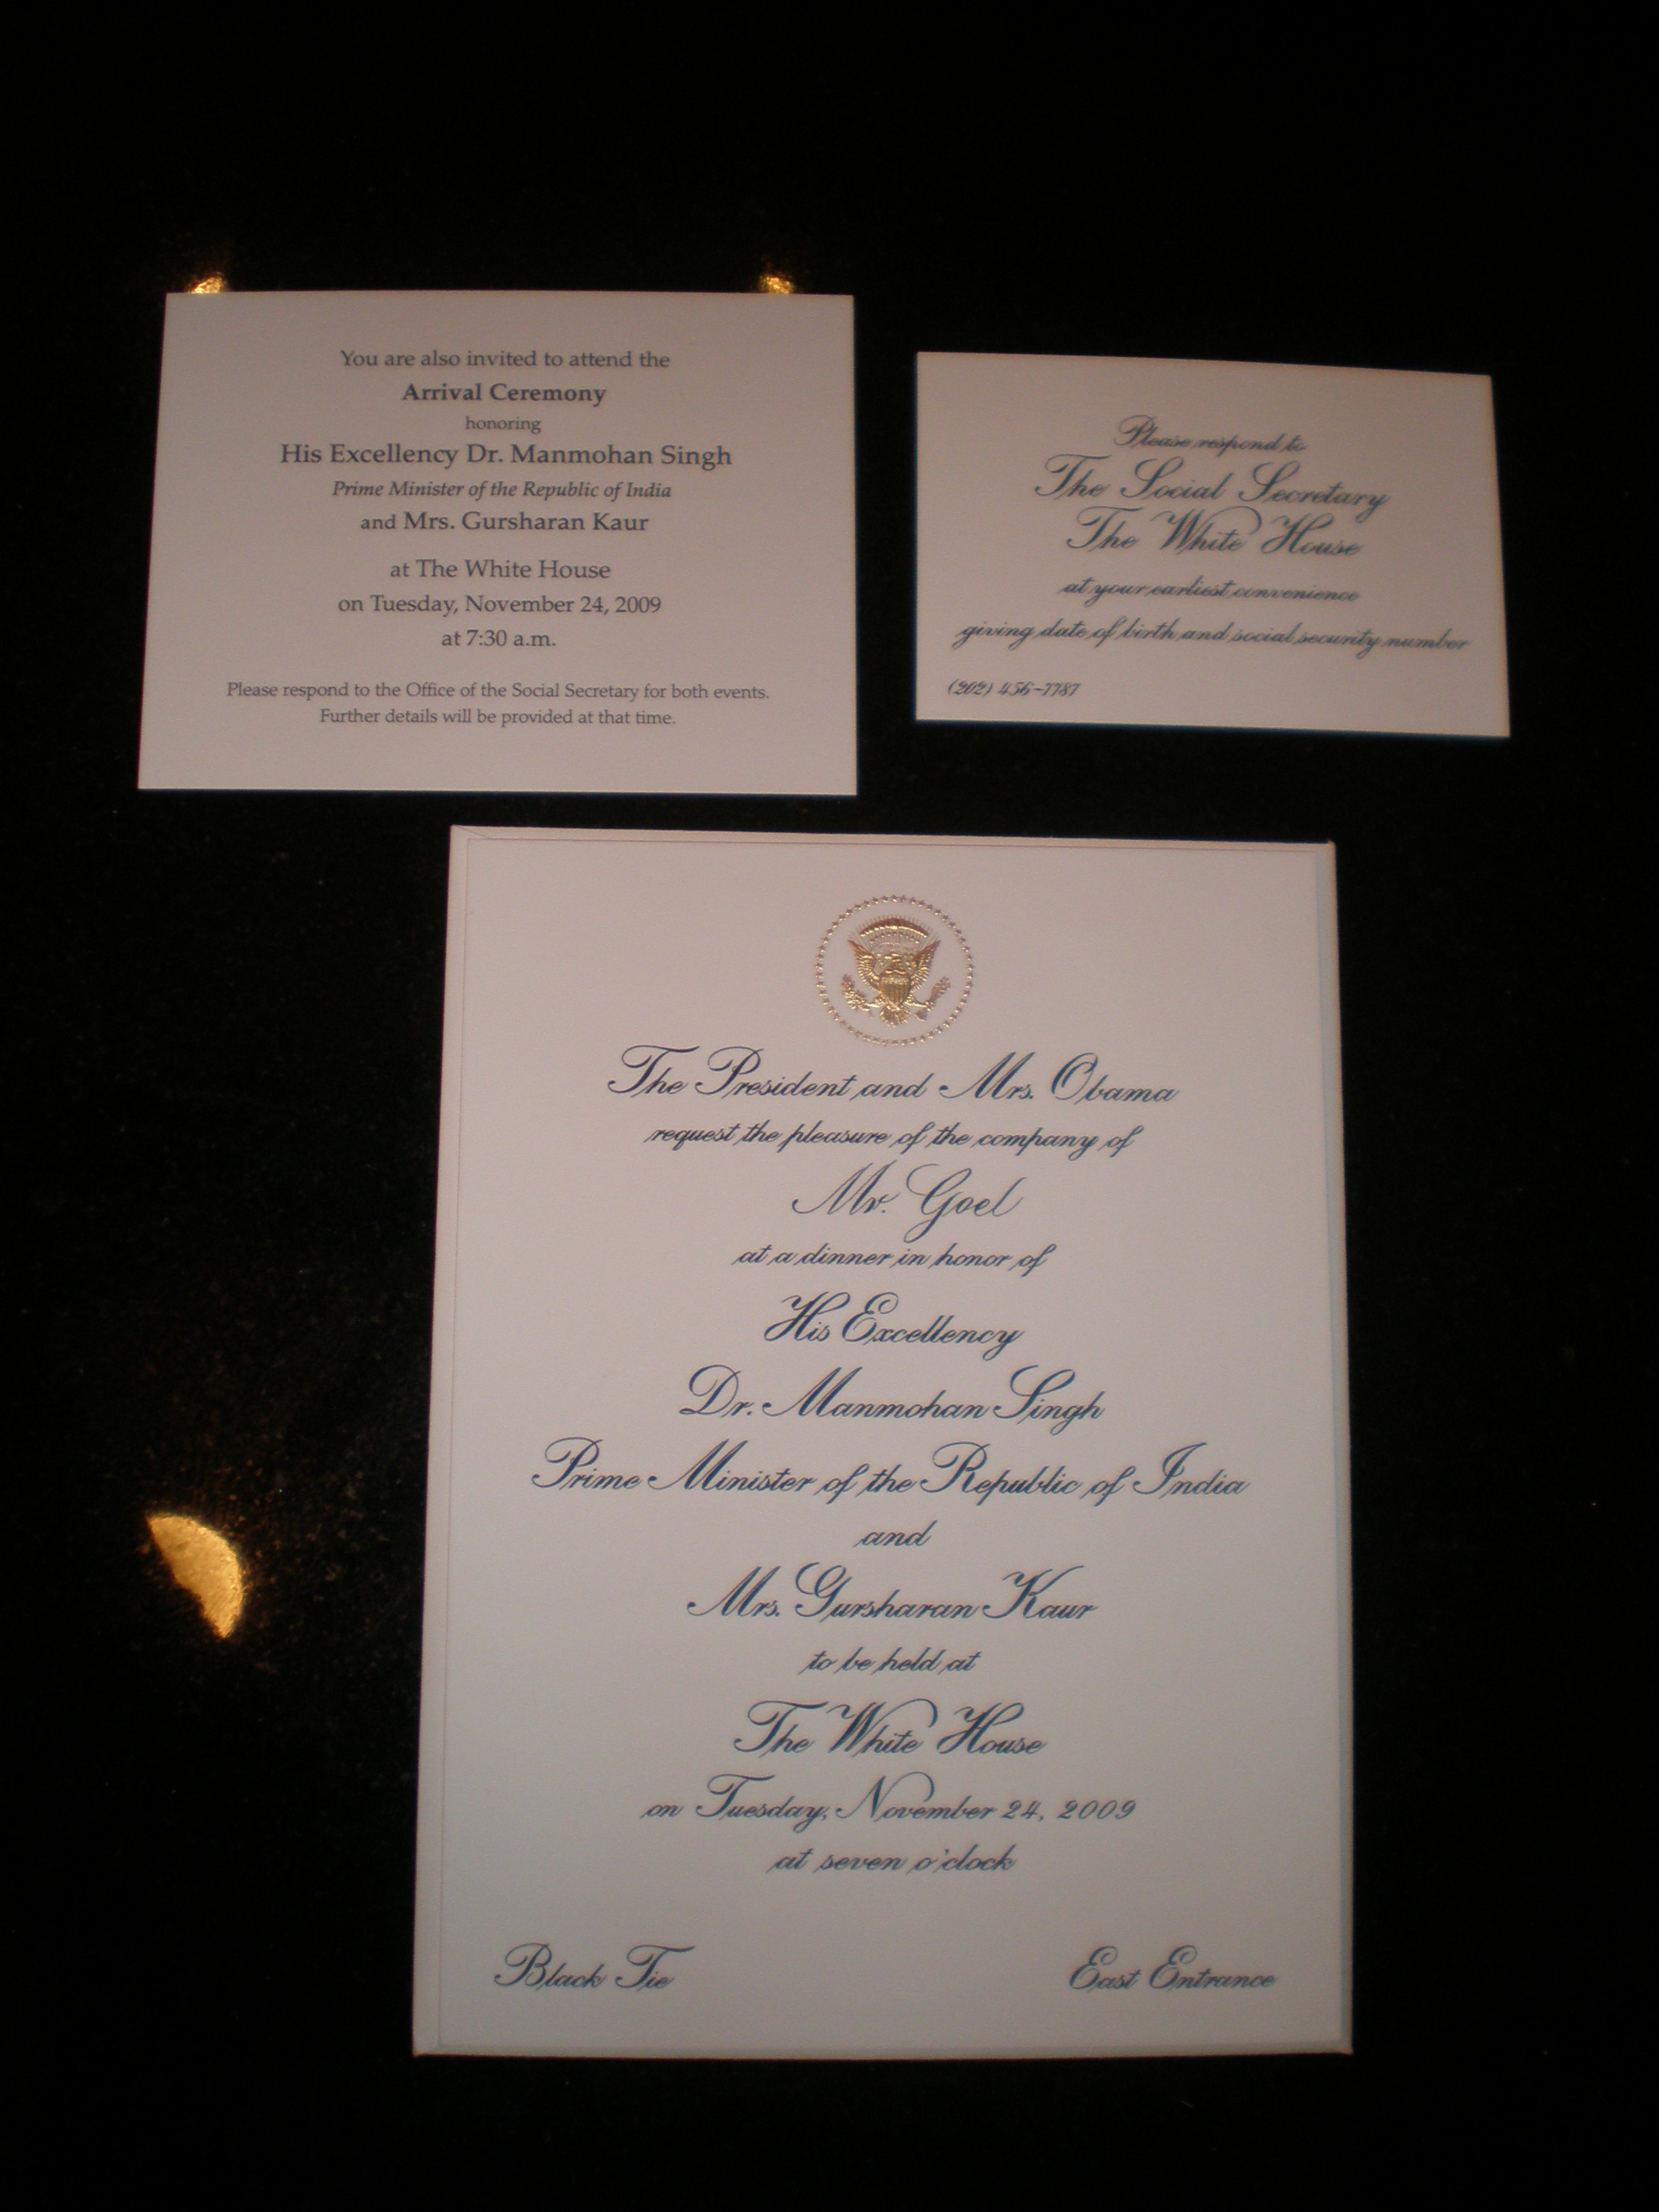 You are also invited to attend the
Arrival Ceremony
honoring
His Excellency Dr. Manmohan Singh
Prime Minister of the Republic of India
and Mrs. Gursharan Kaur
at The White House
on Tuesday, November 24, 2009
at 7:30 a.m.
Please respond to the Office of the Social Secretary for both events.
Further details will be provided at that time.
Please respond to
The Social Secretary
The White House
at your earliest convenience
giving date of birth and social security number
(202) 456-7787
The President and Mrs. Obama
request the pleasure of the company of
Mr. Goel
at a dinner in honor of
His Excellency
Dr. Manmohan Singh
Prime Minister of the Republic of India
and
Mrs. Gursharan Kaur
to be held at
The White House
on Tuesday, November 24, 2009
at seven o'clock
Black Tie
East Entrance